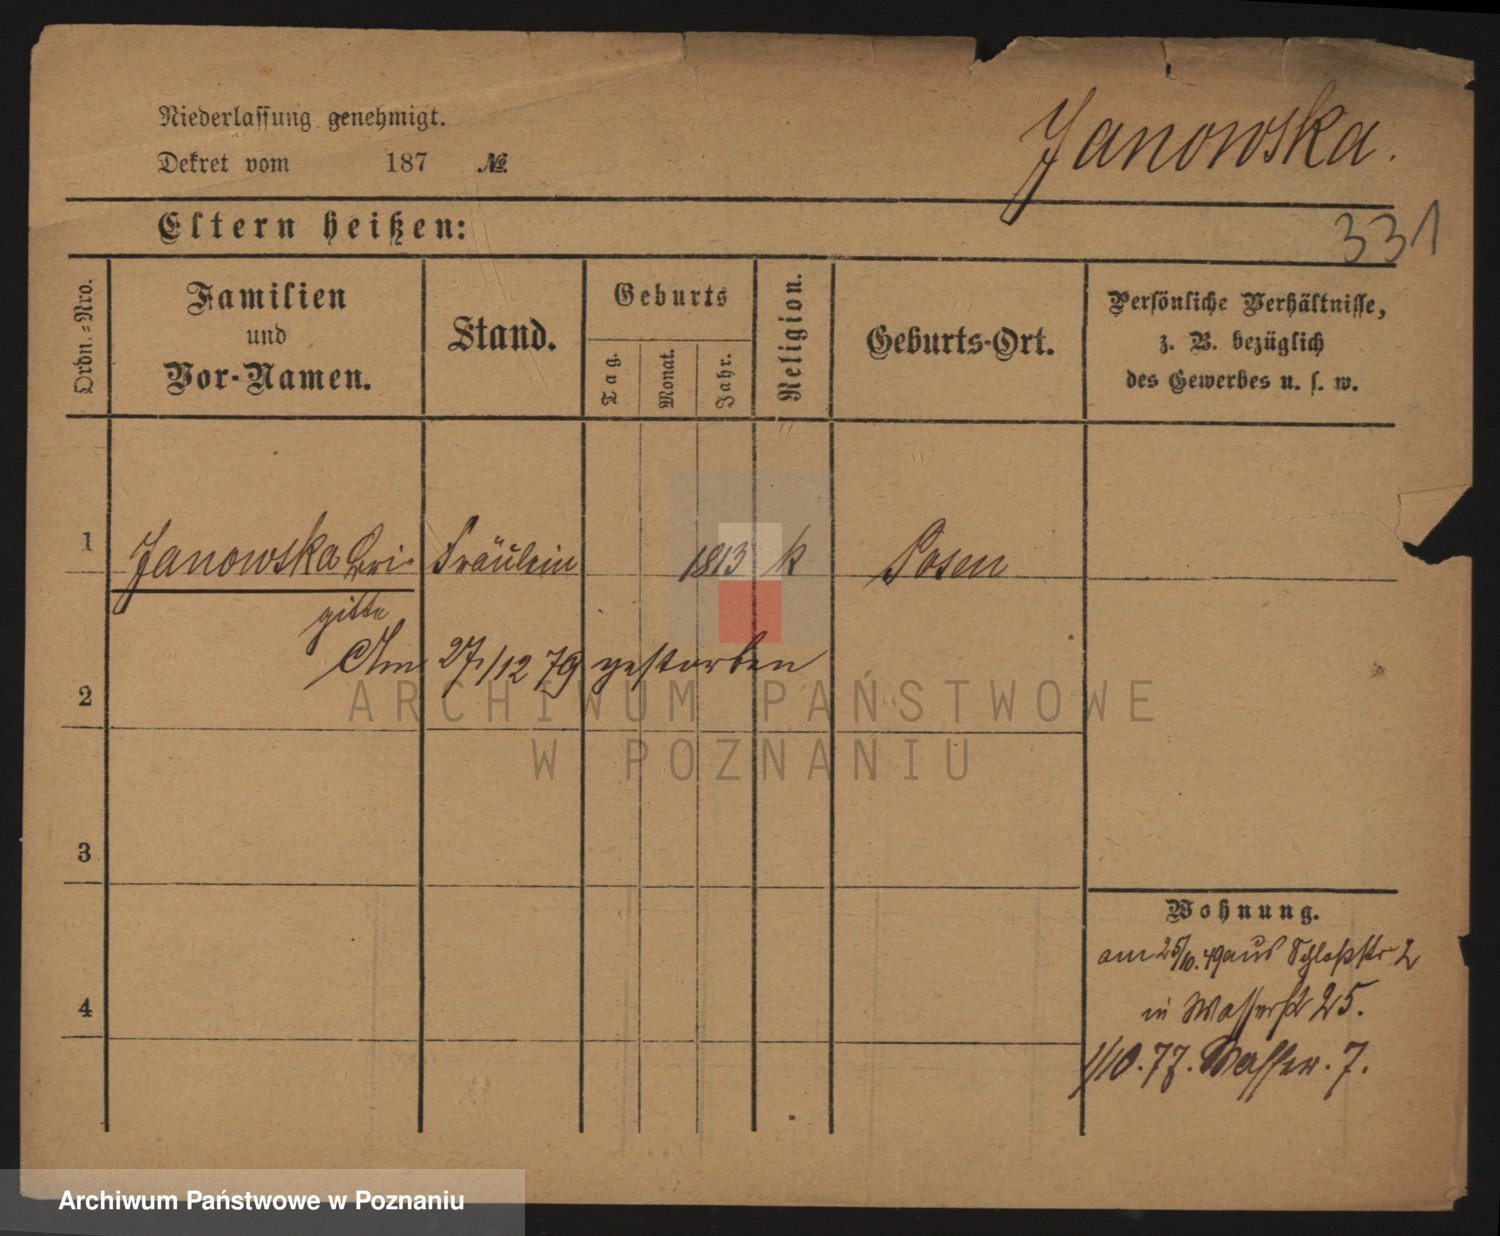 Niederlassung genehmigt.
Dekret vom 187 №.
Janowska.
Eltern heißen:
331
Ordn.-Nro.
Familien
und
Vor-Namen.
Stand.
Geburts
Tag.
Monat.
Jahr.
Religion.
Geburts-Ort.
Persönliche Verhältnisse,
z. B. bezüglich
des Gewerbes u. s. w.
1 Janowska Bri- Fräulein 1813 k Posen
gitte
Am 27/12 79 gestorben
2
ARCHIWUM PAŃSTWOWE
W POZNANIU
3
Wohnung.
am 25/10. 49 aus Schloßstr 2
4
in Wasserstr 25.
1/10. 77. Wasser. 7.
Archiwum Państwowe w Poznaniu